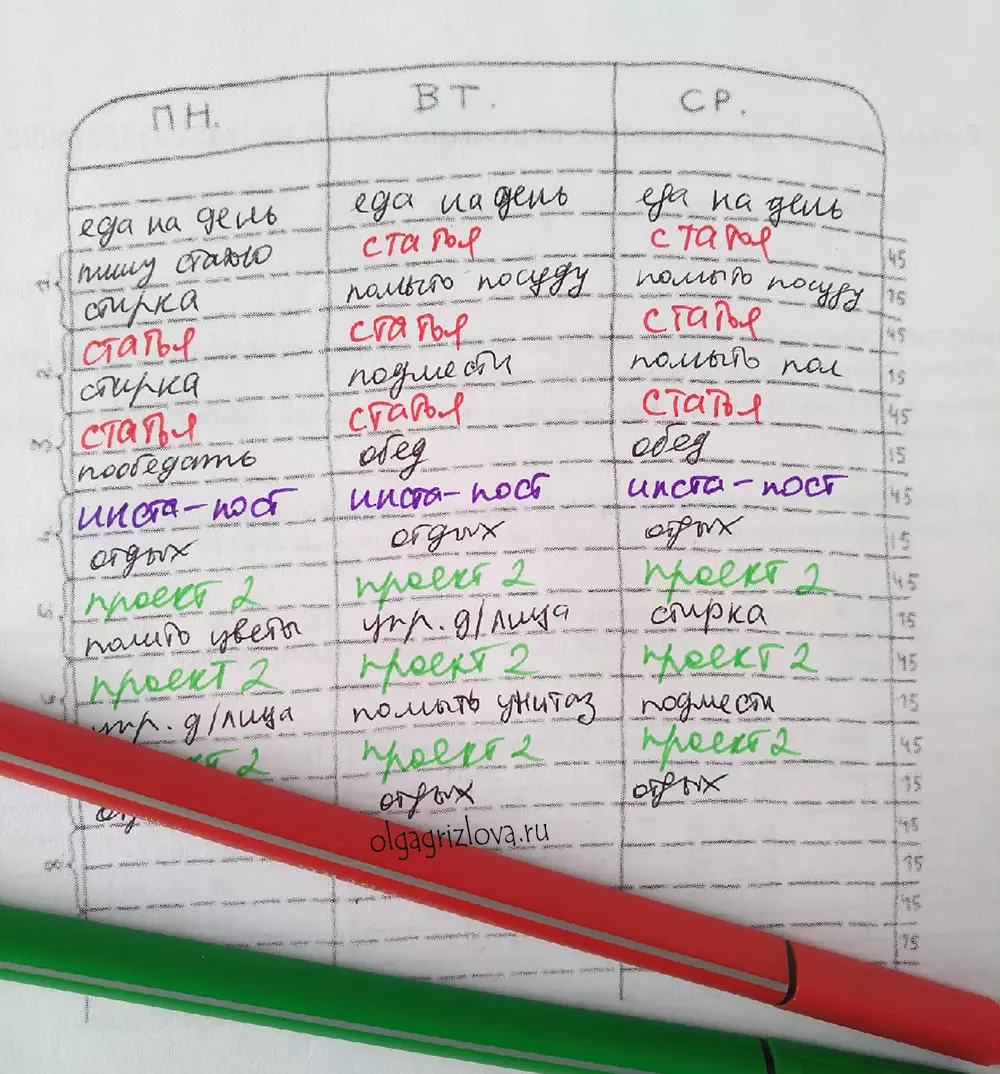 ПН. ВТ. СР.
еда на день еда на день еда на день
пишу статью статья статья 45
стирка помыть посуду помыть посуду 15
статья статья статья 45
стирка подмести помыть пол 15
статья статья статья 45
пообедать обед обед 15
инста-пост инста-пост инста-пост 45
отдых отдых отдых 15
проект 2 проект 2 проект 2 45
полить цветы упр. д/лица стирка 15
проект 2 проект 2 проект 2 45
упр. д/лица помыть унитаз подмести 15
2 проект 2 проект 2 45
отдых отдых 15
olgagrizlova.ru 45
8 15
15
15